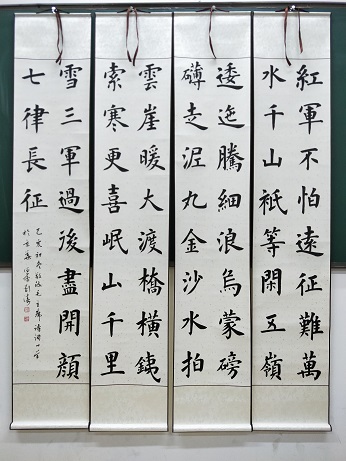 紅軍不怕遠征難萬
水千山祇等閑五嶺
逶迤騰細浪烏蒙磅
礴走泥丸金沙水拍
雲崖暖大渡橋橫銕
索寒更喜岷山千里
雪三軍過後盡開顏
七律長征
己亥初冬毛主席詩詞一首